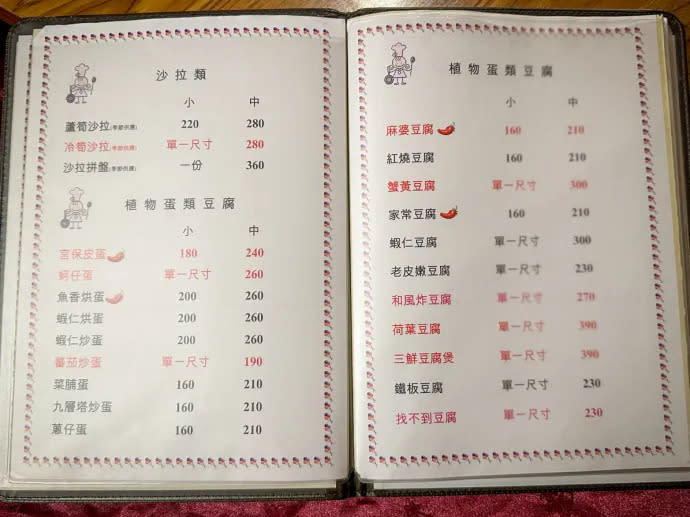 沙拉類
小 中
蘆筍沙拉(季節供應) 220 280
冷筍沙拉(季節供應) 單一尺寸 280
沙拉拼盤(季節供應) 一份 360
植物蛋類豆腐
小 中
宮保皮蛋 180 240
蚵仔蛋 單一尺寸 260
魚香烘蛋 200 260
蝦仁烘蛋 200 260
蝦仁炒蛋 200 260
蕃茄炒蛋 單一尺寸 190
菜脯蛋 160 210
九層塔炒蛋 160 210
蔥仔蛋 160 210
植物蛋類豆腐
小 中
麻婆豆腐 160 210
紅燒豆腐 160 210
蟹黃豆腐 單一尺寸 300
家常豆腐 160 210
蝦仁豆腐 單一尺寸 300
老皮嫩豆腐 單一尺寸 230
和風炸豆腐 單一尺寸 270
荷葉豆腐 單一尺寸 390
三鮮豆腐煲 單一尺寸 390
鐵板豆腐 單一尺寸 230
找不到豆腐 單一尺寸 230